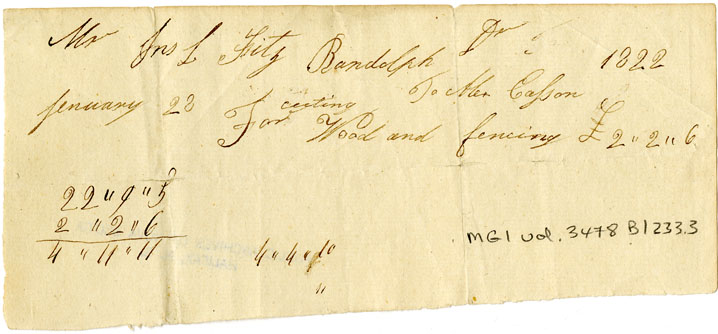 Mr Jns L Fitz Randolph Dr 1822
Jenuary 23 To Alex Casson
For cuting Wood and fencing £ 2 " 2 " 6
2 " 2 " 6
4 " 11 " 11
4 " 4 "
MG1 vol. 3478 B1233.3